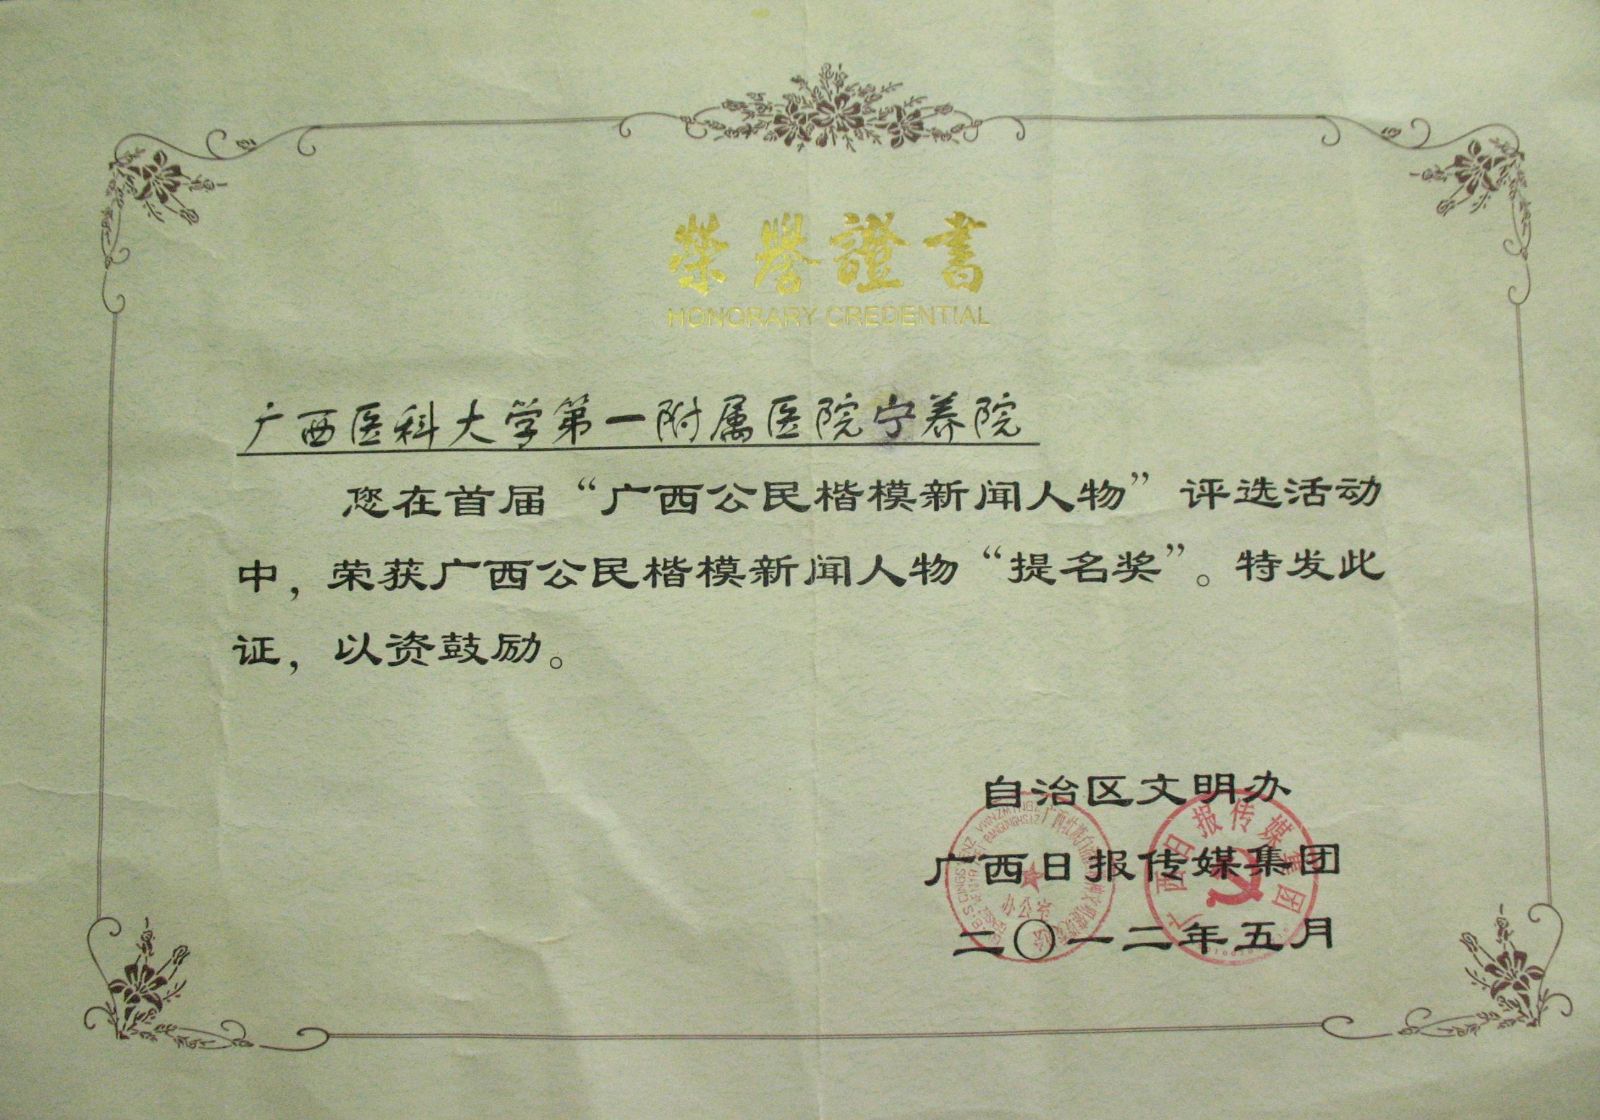 榮譽證書
HONORARY CREDENTIAL
广西医科大学第一附属医院宁养院
您在首届“广西公民楷模新闻人物”评选活动
中，荣获广西公民楷模新闻人物“提名奖”。特发此
证，以资鼓励。
自治区文明办
广西日报传媒集团
二〇一二年五月
办公室
广西日报传媒集团